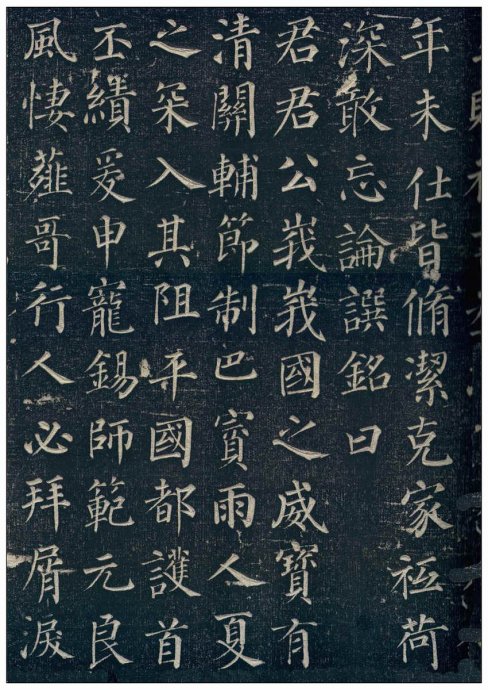 年未仕皆脩潔克家祗荷
深敢忘論譔銘曰
君君公峩峩國之威寶有
清關輔節制巴賨雨人夏
之罙入其阻平國都護首
丕績爰申寵錫師範元良
風悽薤哥行人必拜屑涙